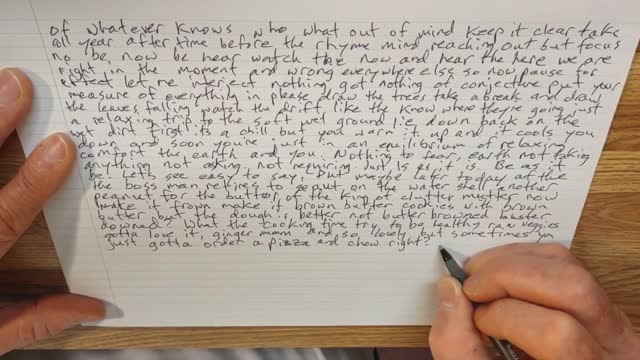 of whatever knows who what out of mind keep it clear take
all year after time before the rhyme mind reaching out but focus
no be now be hear watch the now and hear the here we are
right in the moment and wrong everywhere else so now pause for
effect let me interject nothing got nothing of conjecture put your
measure of everything in please draw the trees take a break and draw
the leaves falling watch the drift like the know where they're going just
a relaxing trip to the soft wet ground lie down back on the
wet dirt first it's a chill but you warm it up and it cools you
down and soon you're just in an equilibrium of relaxing
comfort the earth and you. Nothing to fear, earth not taking
anything not asking, not requiring but is as it is. Be as it
be! Let's see easy to say, but maybe eat today at the
the boss man retires to on the water shell another
peanut for the butter of the king the clutter master now
make it from make it brown butter cookies with brown
butter but the dough is better not butter browned
downed? What the cooking time try to be healthy raw veggies
gotta love it, ginger mmm and so lovely but sometimes you
just gotta order a pizza and chow right?